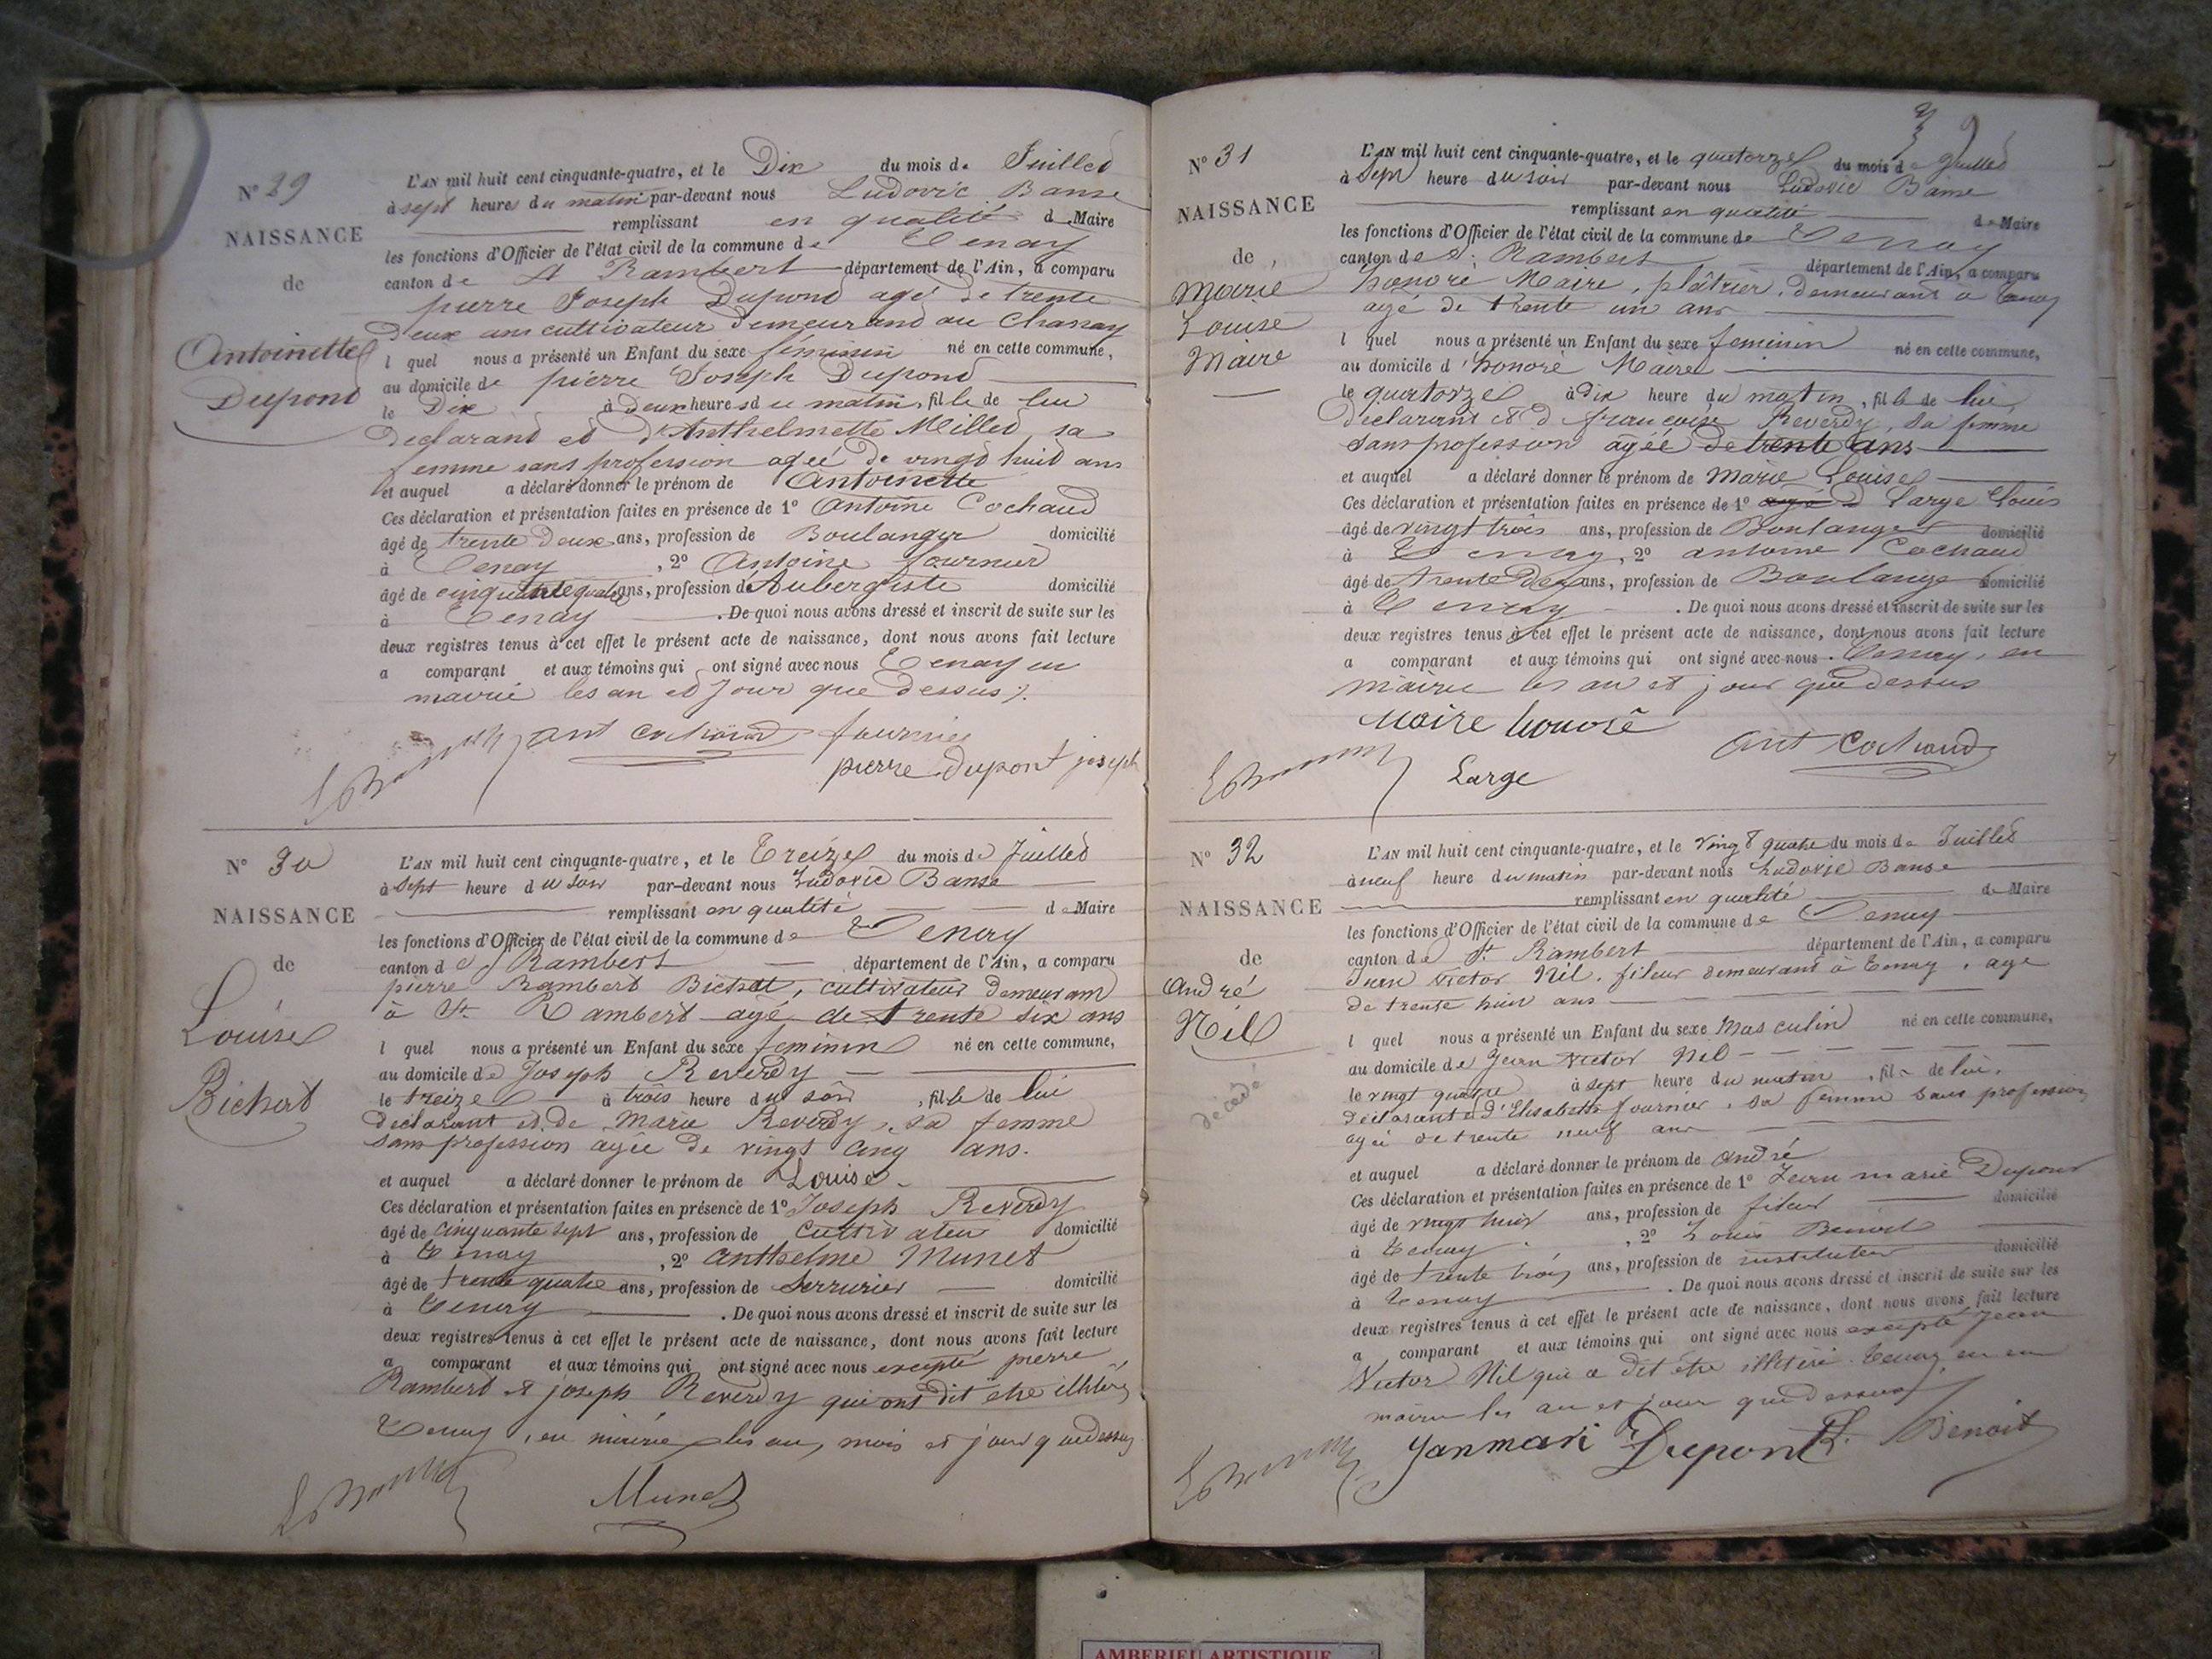 N° 29
NAISSANCE
de
Antoinette
Dupond
L'AN mil huit cent cinquante-quatre, et le Dix du mois de Juillet
à sept heures du matin par-devant nous Ludovic Banse
remplissant en qualité de Maire
les fonctions d'Officier de l'état civil de la commune de Tenay
canton de St Rambert département de l'Ain, a comparu
pierre Joseph Dupond agé de trente
Deux ans cultivateur Demeurand au Chanay
l quel nous a présenté un Enfant du sexe féminin né en cette commune,
au domicile de pierre Joseph Dupond
le Dix à deux heures du matin, fille de lui
declarand et d'Anthelmette Millet sa
femme sans profession agée de vingt huit ans
et auquel a déclaré donner le prénom de Antoinette
Ces déclaration et présentation faites en présence de 1° Antoine Cochaud
âgé de trente Deux ans, profession de Boulanger domicilié
à Tenay, 2° Antoine fournier
âgé de cinquante quatre ans, profession d'Aubergiste domicilié
à Tenay. De quoi nous avons dressé et inscrit de suite sur les
deux registres tenus à cet effet le présent acte de naissance, dont nous avons fait lecture
a comparant et aux témoins qui ont signé avec nous Tenay en
mairie les an et Jour que Dessus).
ant cochaud fournier
pierre Dupont joseph
N° 30
NAISSANCE
de
Louise
Bichat
L'AN mil huit cent cinquante-quatre, et le Treize du mois de Juillet
à sept heure du soir par-devant nous Ludovic Banse
remplissant en qualité de Maire
les fonctions d'Officier de l'état civil de la commune de Tenay
canton de St Rambert département de l'Ain, a comparu
pierre Rambert Bichat, cultivateur demeurant
à St. Rambert agé de trente six ans
l quel nous a présenté un Enfant du sexe feminin né en cette commune,
au domicile de Joseph Reverdy
le treize à trois heure du soir, fille de lui
declarant et de Marie Reverdy, sa femme
sans profession agée de vingt cinq ans.
et auquel a déclaré donner le prénom de Louise.
Ces déclaration et présentation faites en présence de 1° Joseph Reverdy
âgé de cinquante sept ans, profession de Cultivateur domicilié
à Tenay, 2° anthelme Munet
âgé de trente quatre ans, profession de Serrurier domicilié
à Tenay. De quoi nous avons dressé et inscrit de suite sur les
deux registres tenus à cet effet le présent acte de naissance, dont nous avons fait lecture
a comparant et aux témoins qui ont signé avec nous excepté pierre
Rambert et joseph Reverdy qui ont dit etre illitérés
Tenay, en mairie les an, mois et jour que dessus
Munet
39
N° 31
NAISSANCE
de
Marie
Louise
Maire
L'AN mil huit cent cinquante-quatre, et le quatorze du mois de Juillet
à Sept heure du soir par-devant nous Ludovic Banse
remplissant en qualité de Maire
les fonctions d'Officier de l'état civil de la commune de Tenay
canton de St. Rambert département de l'Ain, a comparu
honoré Maire, plâtrier, demeurant à Tenay
agé de trente un ans
l quel nous a présenté un Enfant du sexe feminin né en cette commune,
au domicile d'honoré Maire
le quatorze à dix heure du matin, fille de lui,
declarant et de francoise Reverdy, sa femme
sans profession agéé de trente ans
et auquel a déclaré donner le prénom de Marie Louise
Ces déclaration et présentation faites en présence de 1° Large Louis
âgé de vingt trois ans, profession de Boulanger domicilié
à Tenay, 2° antoine Cochaud
âgé de trente deux ans, profession de Boulanger domicilié
à Tenay. De quoi nous avons dressé et inscrit de suite sur les
deux registres tenus à cet effet le présent acte de naissance, dont nous avons fait lecture
a comparant et aux témoins qui ont signé avec nous. Tenay, en
mairie les an et jour que dessus
Maire honoré
ant cochaud
Large
N° 32
NAISSANCE
de
André
Nil
décédé
L'AN mil huit cent cinquante-quatre, et le vingt quatre du mois de Juillet
à neuf heure du matin par-devant nous Ludovic Banse
remplissant en qualité de Maire
les fonctions d'Officier de l'état civil de la commune de Tenay
canton de St. Rambert département de l'Ain, a comparu
Jean Victor Nil, fileur demeurant à Tenay, age
de trente huit ans
l quel nous a présenté un Enfant du sexe Masculin né en cette commune,
au domicile de Jean Victor Nil
le vingt quatre à sept heure du matin, fils de lui,
déclarant et d'Elisabeth fournier, sa femme sans profession
agée de trente neuf ans
et auquel a déclaré donner le prénom de André
Ces déclaration et présentation faites en présence de 1° Jean marie Dupont
âgé de vingt huit ans, profession de fileur domicilié
à Tenay, 2° Louis Benoit
âgé de trente trois ans, profession de instituteur domicilié
à Tenay. De quoi nous avons dressé et inscrit de suite sur les
deux registres tenus à cet effet le présent acte de naissance, dont nous avons fait lecture
a comparant et aux témoins qui ont signé avec nous excepté Jean
Victor Nil qui a dit être illitéré Tenay, en
mairie les an et jour que dessus
Janmari Dupont L. Benoit
AMBERIEU ARTISTIQUE